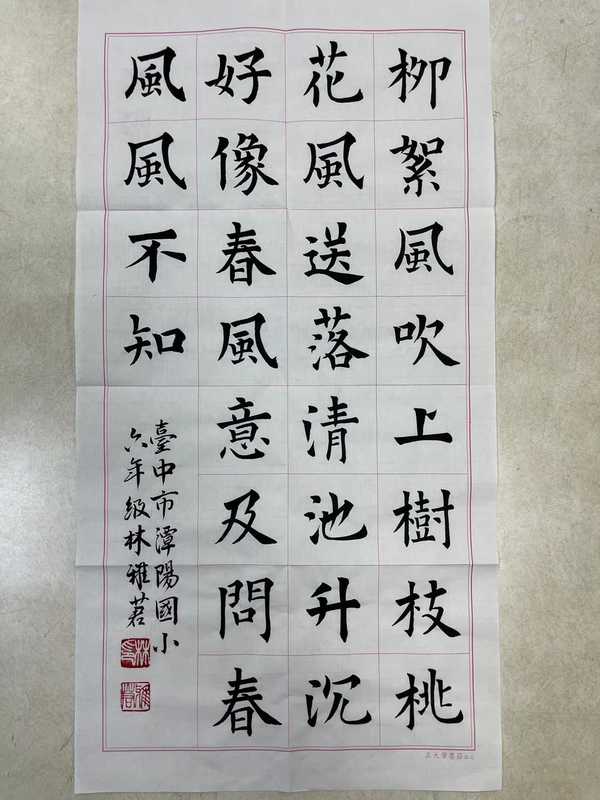 柳絮風吹上樹枝桃
花風送落清池升沉
好像春風意及問春
風風不知
臺中市潭陽國小
六年級林雅茗